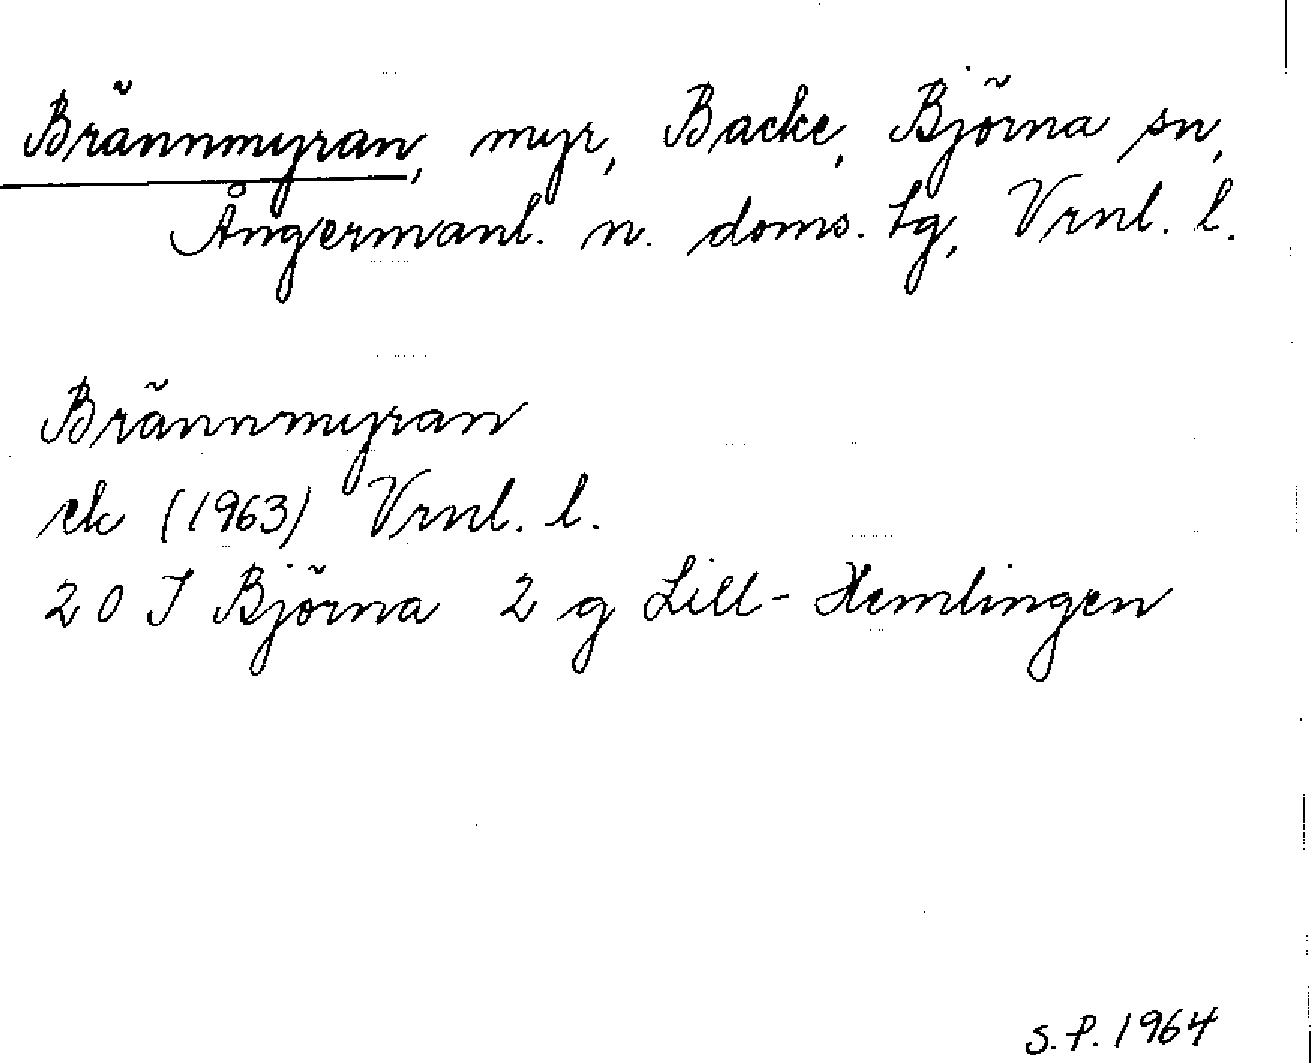 Brännmyran, myr, Backe, Björna sn,
Ångermanl. n. doms. tg, Vrnl. l.
Brännmyran
ek (1963) Vrnl. l.
20 I Björna 2 g Lill-Hemlingen
S.P. 1964